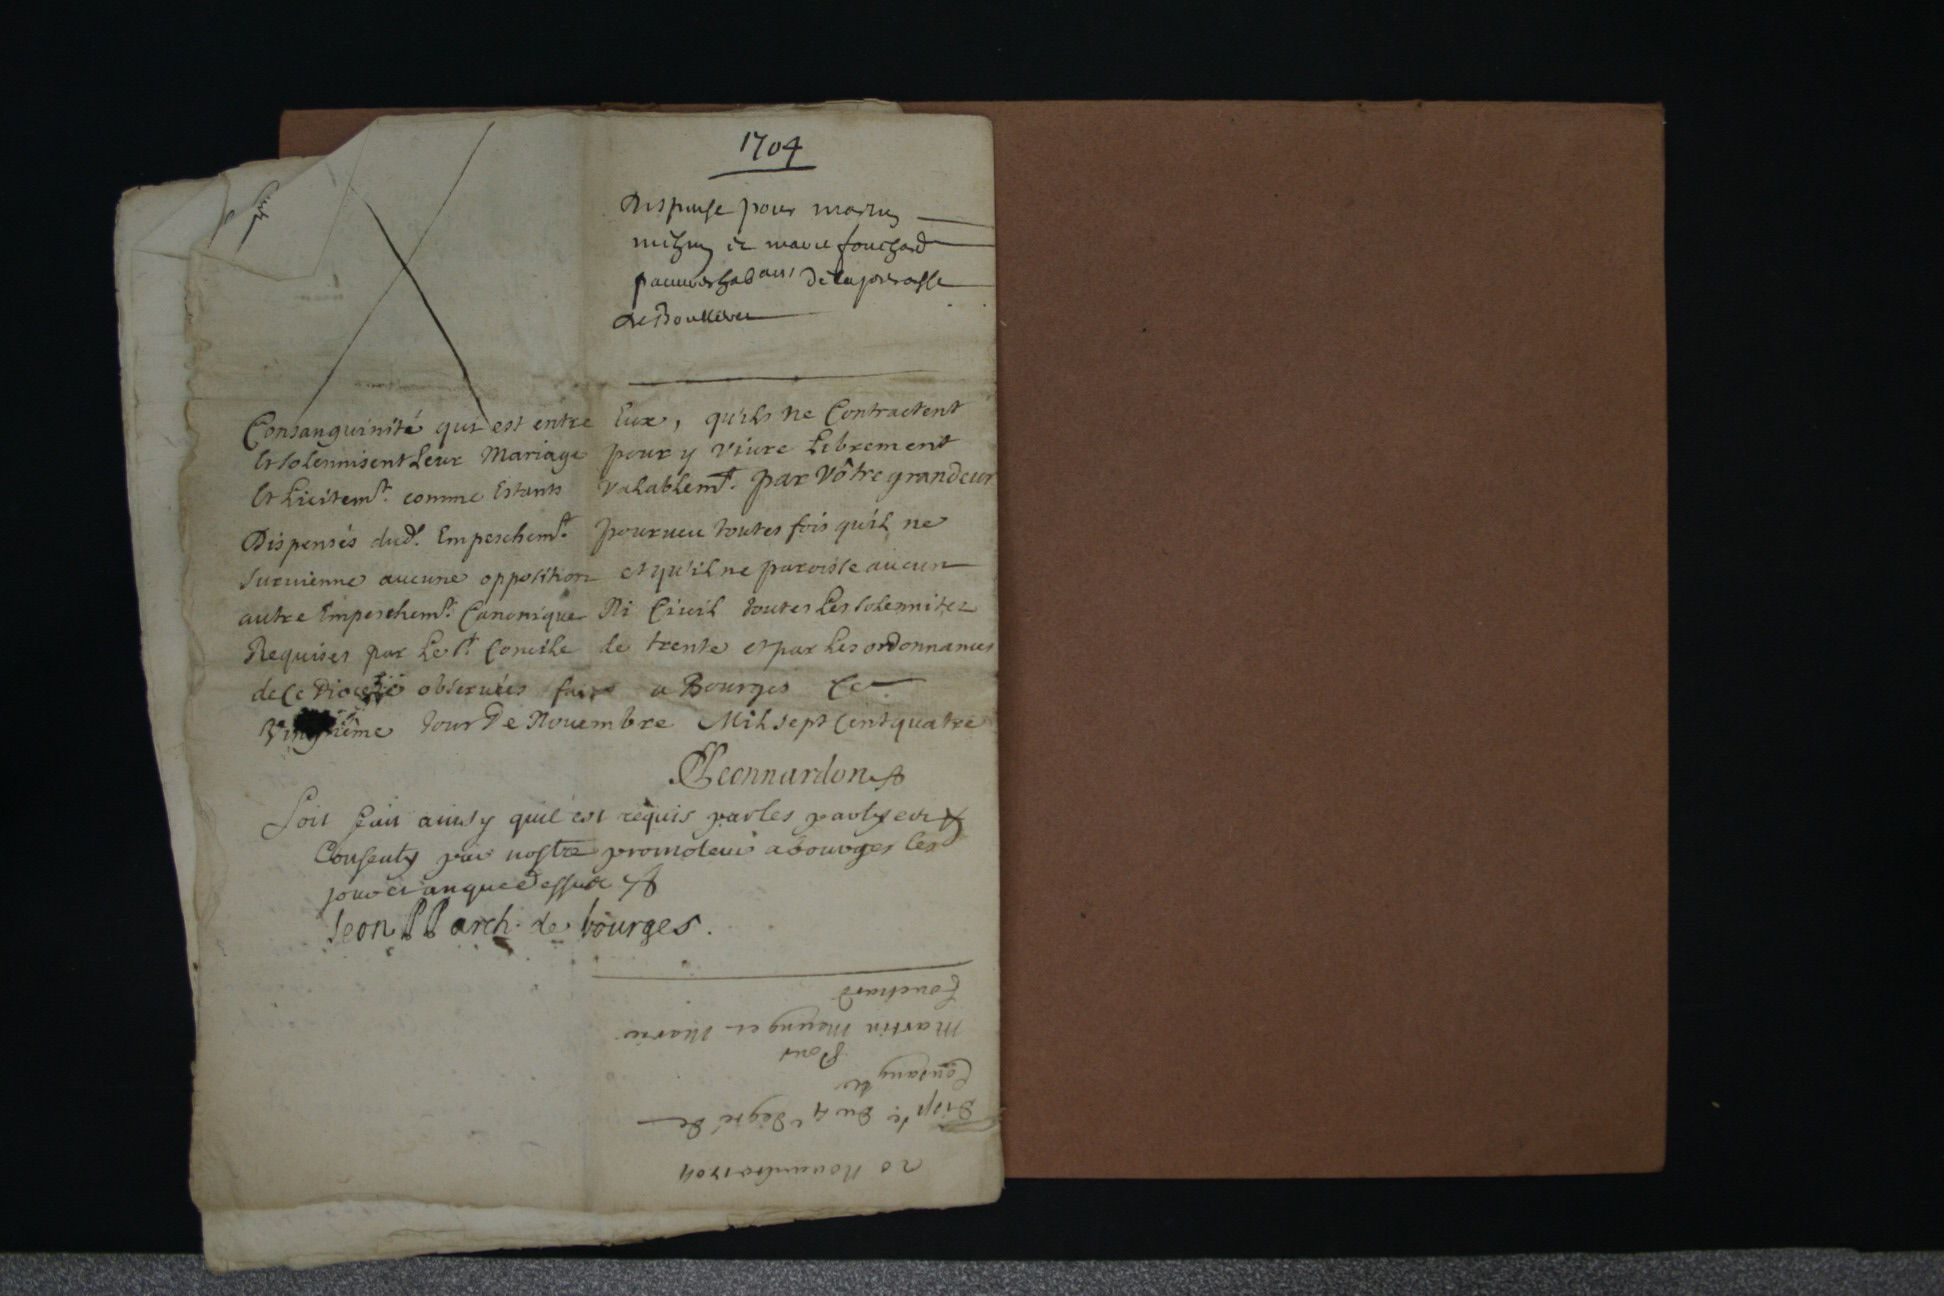 1704
Dispense pour martin
mehun et marie fouchard
pauures habans de la paroisse
de
Consanguinité qui est entre Eux, qu'ils ne Contractent
et solennisent Leur Mariage pour y viure Librement
et Licitemt. comme Estants valablemt. par vôtre grandeur
Dispensés dud. Empeschemt. pourueu toutes fois qu'il ne
suruienne aucune opposition et qu'il ne paroisse aucun
autre Empeschemt. Canonique Ni Ciuil toutes Les solennitez
Requises par Le st. Concile de trente et par Les ordonnances
de ce Diocese obseruées fait a Bourges Ce
Vingtième Jour De Nouembre Mil sept Cent quatre
Leonnardon
Soit fait ainsy quil est requis par les partyes et
Consenty par nostre promoteur a bourges les
jour et an que dessus
leon PP arch. de bourges.
20 Nouembre 1704
Dispse. du 4e degré de
Consangté
Pour
Martin Meung et Marie
Fouchard